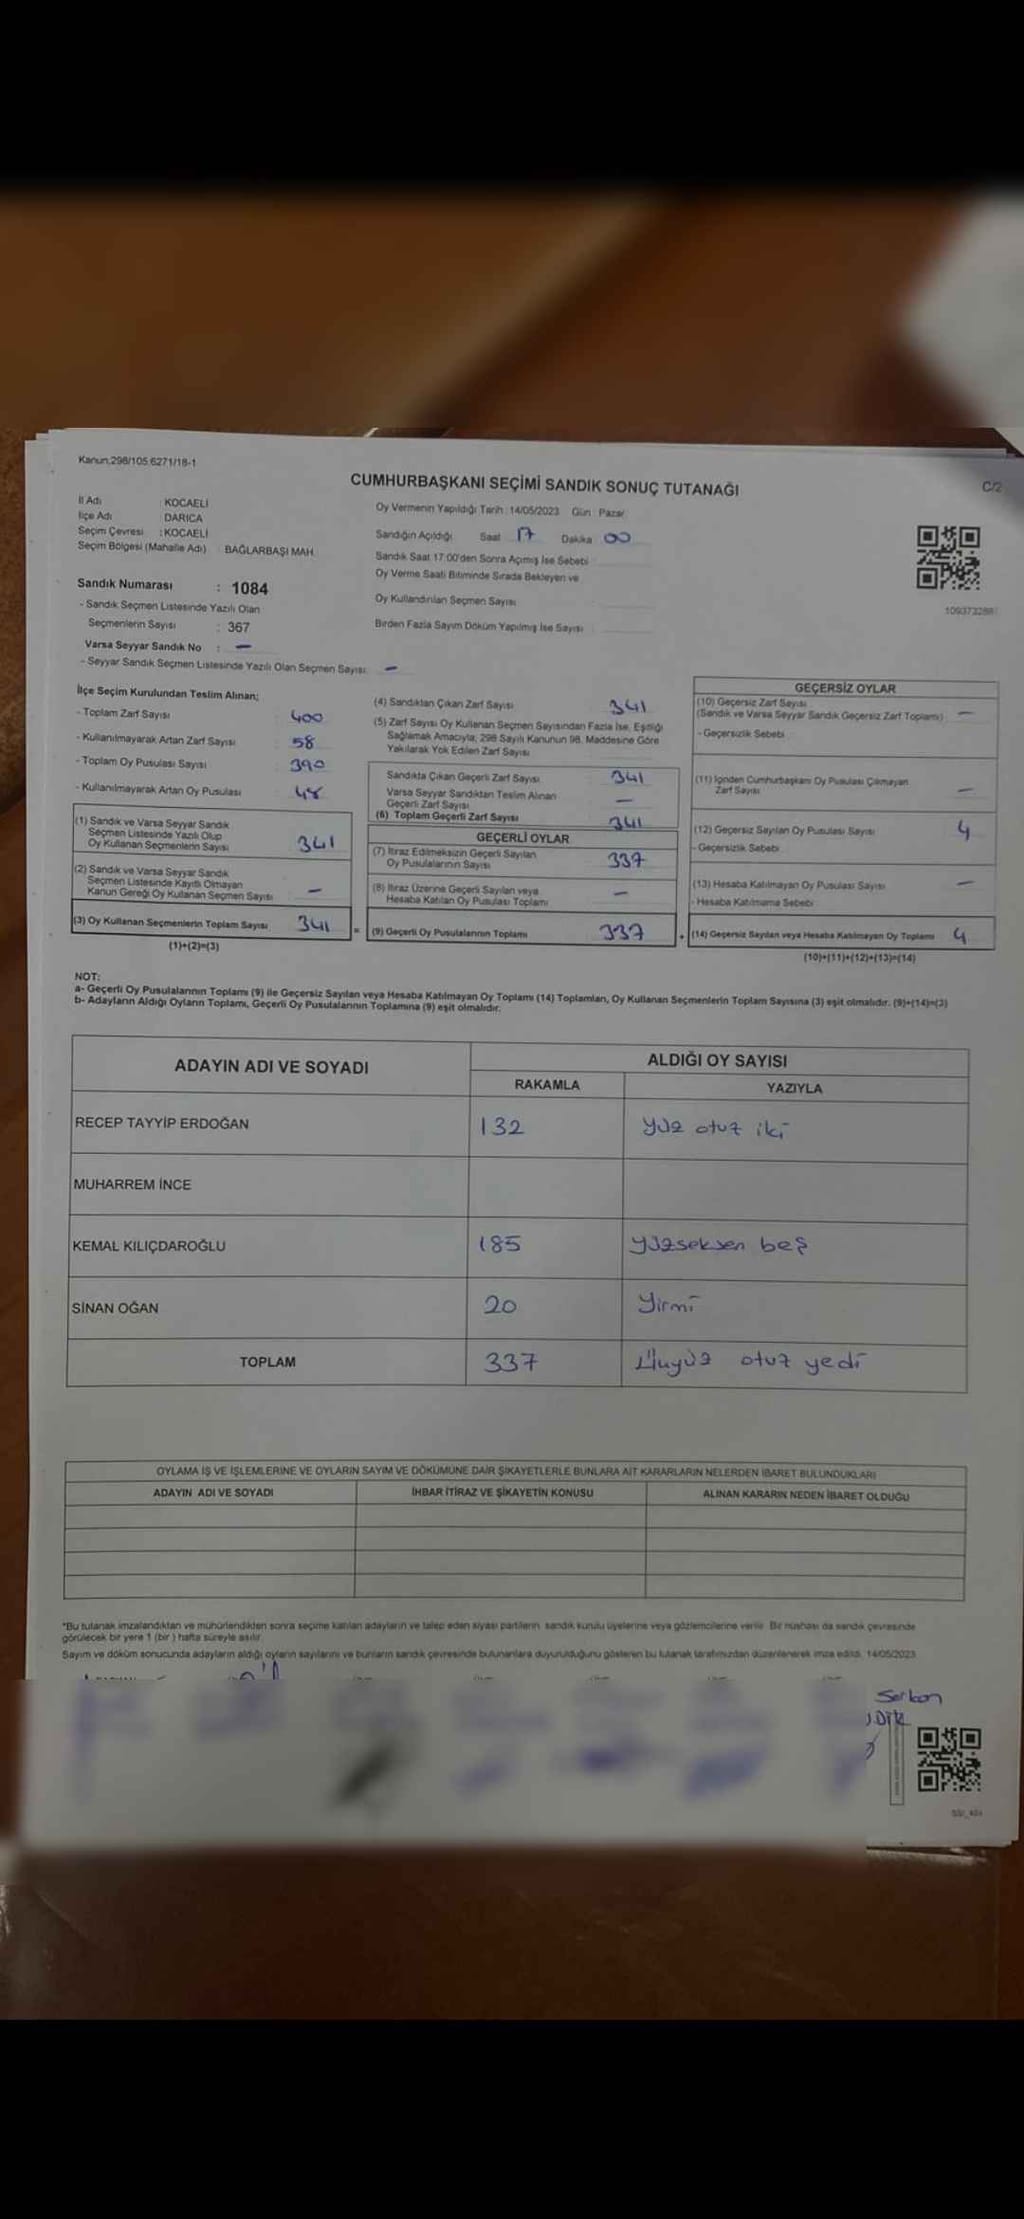 Kanun:298/105.6271/18-1
C/2
CUMHURBAŞKANI SEÇİMİ SANDIK SONUÇ TUTANAĞI
İl Adı : KOCAELİ
İlçe Adı : DARICA
Seçim Çevresi : KOCAELİ
Seçim Bölgesi (Mahalle Adı) : BAĞLARBAŞI MAH.
Oy Vermenin Yapıldığı Tarih : 14/05/2023 Gün : Pazar
Sandığın Açıldığı Saat 17 Dakika 00
Sandık Saat 17:00'den Sonra Açılmış İse Sebebi
Oy Verme Saati Bitiminde Sırada Bekleyen ve
Oy Kullandırılan Seçmen Sayısı
Birden Fazla Sayım Döküm Yapılmış İse Sayısı :
Sandık Numarası : 1084
- Sandık Seçmen Listesinde Yazılı Olan
Seçmenlerin Sayısı : 367
Varsa Seyyar Sandık No : —
- Seyyar Sandık Seçmen Listesinde Yazılı Olan Seçmen Sayısı: —
İlçe Seçim Kurulundan Teslim Alınan;
- Toplam Zarf Sayısı : 400
- Kullanılmayarak Artan Zarf Sayısı : 58
- Toplam Oy Pusulası Sayısı : 390
- Kullanılmayarak Artan Oy Pusulası : 48
(1) Sandık ve Varsa Seyyar Sandık
Seçmen Listesinde Yazılı Olup
Oy Kullanan Seçmenlerin Sayısı 341
(2) Sandık ve Varsa Seyyar Sandık
Seçmen Listesinde Kayıtlı Olmayan
Kanun Gereği Oy Kullanan Seçmen Sayısı —
(3) Oy Kullanan Seçmenlerin Toplam Sayısı 341
(1)+(2)=(3)
(4) Sandıktan Çıkan Zarf Sayısı 341
(5) Zarf Sayısı Oy Kullanan Seçmen Sayısından Fazla İse, Eşitliği
Sağlamak Amacıyla, 298 Sayılı Kanunun 98. Maddesine Göre
Yakılarak Yok Edilen Zarf Sayısı
Sandıkta Çıkan Geçerli Zarf Sayısı 341
Varsa Seyyar Sandıktan Teslim Alınan
Geçerli Zarf Sayısı —
(6) Toplam Geçerli Zarf Sayısı 341
GEÇERLİ OYLAR
(7) İtiraz Edilmeksizin Geçerli Sayılan
Oy Pusulalarının Sayısı 337
(8) İtiraz Üzerine Geçerli Sayılan veya
Hesaba Katılan Oy Pusulası Toplamı —
= (9) Geçerli Oy Pusulalarının Toplamı 337
GEÇERSİZ OYLAR
(10) Geçersiz Zarf Sayısı
(Sandık ve Varsa Seyyar Sandık Geçersiz Zarf Toplamı) —
- Geçersizlik Sebebi
(11) İçinden Cumhurbaşkanı Oy Pusulası Çıkmayan
Zarf Sayısı —
(12) Geçersiz Sayılan Oy Pusulası Sayısı 4
- Geçersizlik Sebebi
(13) Hesaba Katılmayan Oy Pusulası Sayısı —
- Hesaba Katılmama Sebebi
+ (14) Geçersiz Sayılan veya Hesaba Katılmayan Oy Toplamı 4
(10)+(11)+(12)+(13)=(14)
NOT:
a- Geçerli Oy Pusulalarının Toplamı (9) ile Geçersiz Sayılan veya Hesaba Katılmayan Oy Toplamı (14) Toplamları, Oy Kullanan Seçmenlerin Toplam Sayısına (3) eşit olmalıdır. (9)+(14)=(3)
b- Adayların Aldığı Oyların Toplamı, Geçerli Oy Pusulalarının Toplamına (9) eşit olmalıdır.
ADAYIN ADI VE SOYADI
ALDIĞI OY SAYISI
RAKAMLA YAZIYLA
RECEP TAYYİP ERDOĞAN 132 yüz otuz iki
MUHARREM İNCE
KEMAL KILIÇDAROĞLU 185 yüzseksen beş
SİNAN OĞAN 20 Yirmi
TOPLAM 337 Üçyüz otuz yedi
OYLAMA İŞ VE İŞLEMLERİNE VE OYLARIN SAYIM VE DÖKÜMÜNE DAİR ŞİKAYETLERLE BUNLARA AİT KARARLARIN NELERDEN İBARET BULUNDUKLARI
ADAYIN ADI VE SOYADI İHBAR İTİRAZ VE ŞİKAYETİN KONUSU ALINAN KARARIN NEDEN İBARET OLDUĞU
*Bu tutanak imzalandıktan ve mühürlendikten sonra seçime katılan adayların ve talep eden siyasi partilerin sandık kurulu üyelerine veya gözlemcilerine verilir. Bir nüshası da sandık çevresinde
görülecek bir yere 1 (bir) hafta süreyle asılır.
Sayım ve döküm sonucunda adayların aldığı oyların sayılarını ve bunların sandık çevresinde bulunanlara duyurulduğunu gösteren bu tutanak tarafımızdan düzenlenerek imza edildi. 14/05/2023
Serkan